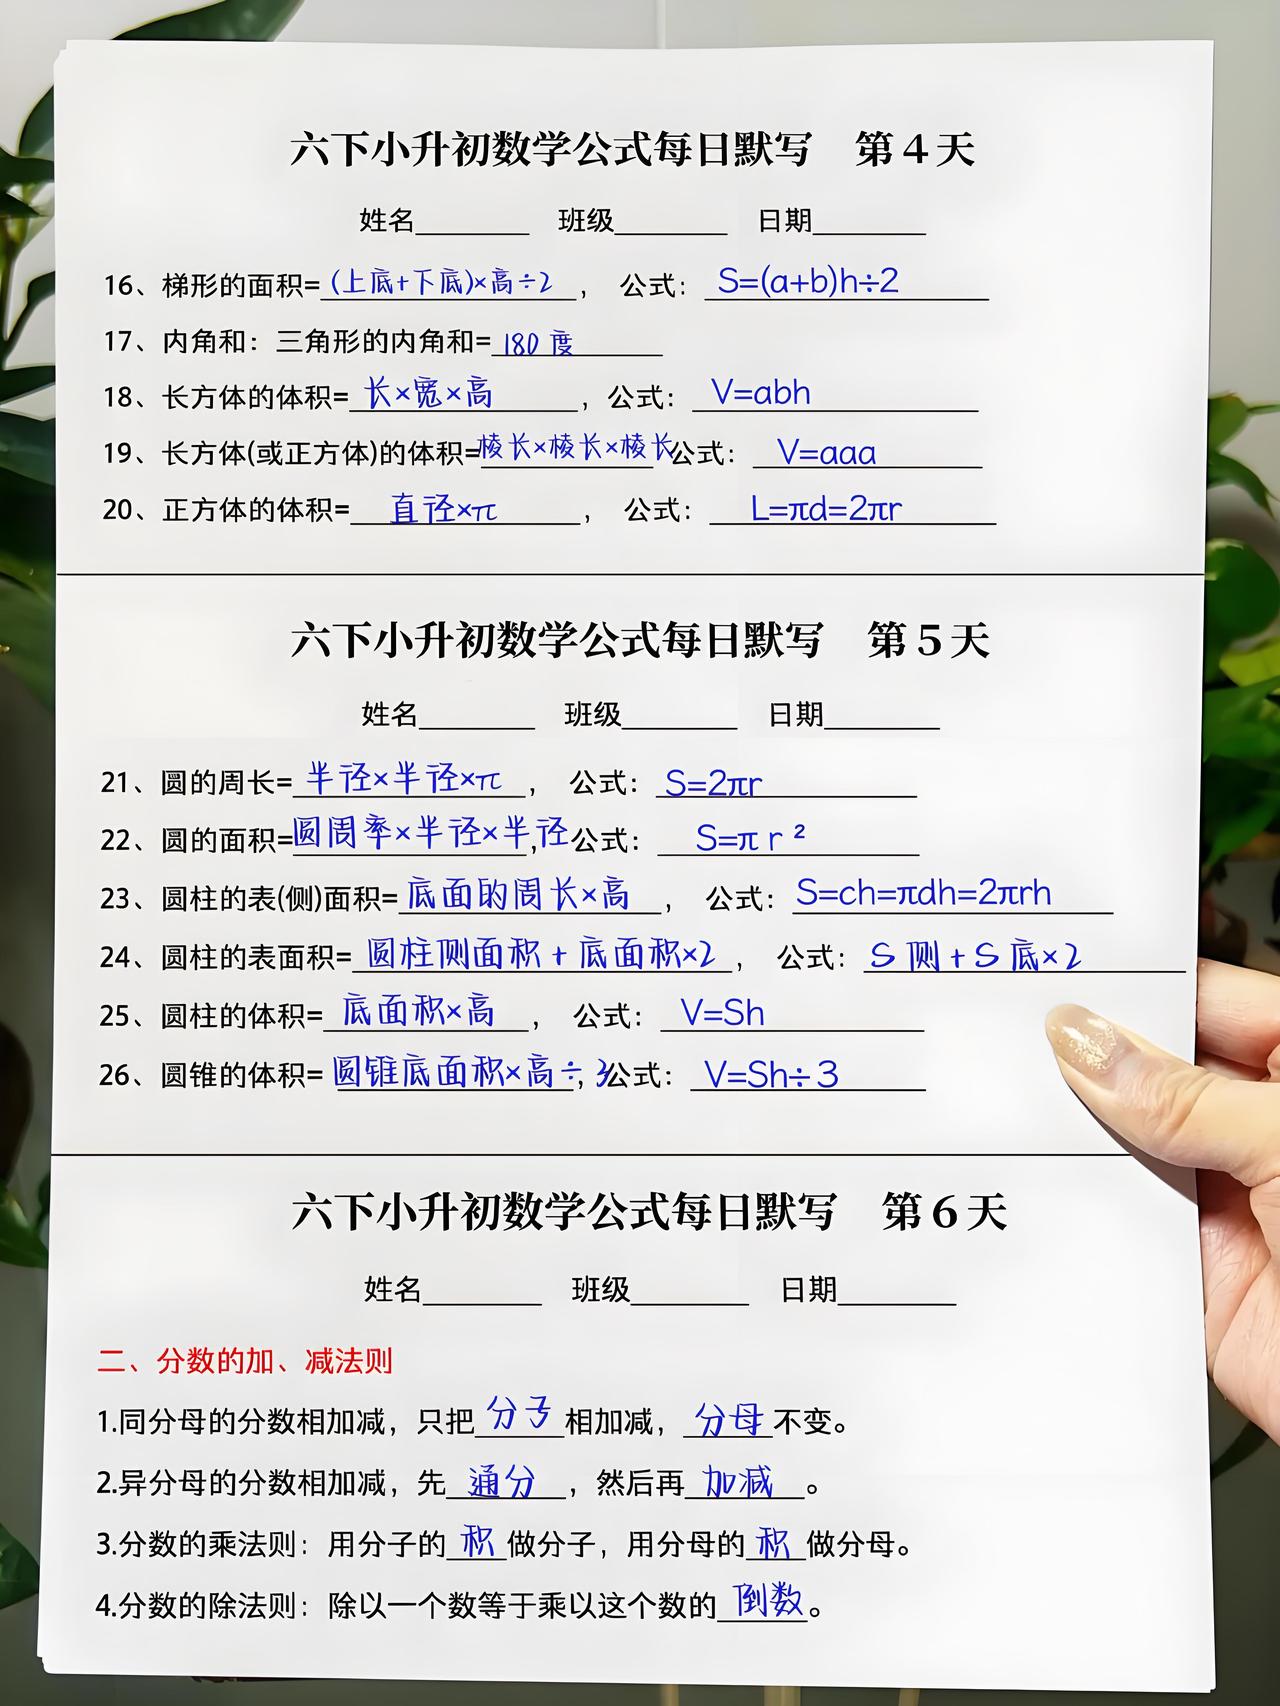 六下小升初数学公式每日默写 第4天
姓名________ 班级________ 日期________
16、梯形的面积=(上底+下底)×高÷2， 公式：S=(a+b)h÷2
17、内角和：三角形的内角和=180度
18、长方体的体积=长×宽×高，公式：V=abh
19、长方体(或正方体)的体积=棱长×棱长×棱长 公式：V=aaa
20、正方体的体积=直径×π， 公式：L=πd=2πr
六下小升初数学公式每日默写 第5天
姓名________ 班级________ 日期________
21、圆的周长=半径×半径×π， 公式：S=2πr
22、圆的面积=圆周率×半径×半径，公式：S=πr²
23、圆柱的表(侧)面积=底面的周长×高， 公式：S=ch=πdh=2πrh
24、圆柱的表面积=圆柱侧面积+底面积×2， 公式：S侧+S底×2
25、圆柱的体积=底面积×高， 公式：V=Sh
26、圆锥的体积=圆锥底面积×高÷3，公式：V=Sh÷3
六下小升初数学公式每日默写 第6天
姓名________ 班级________ 日期________
二、分数的加、减法则
1.同分母的分数相加减，只把分子相加减，分母不变。
2.异分母的分数相加减，先通分，然后再加减。
3.分数的乘法则：用分子的积做分子，用分母的积做分母。
4.分数的除法则：除以一个数等于乘以这个数的倒数。